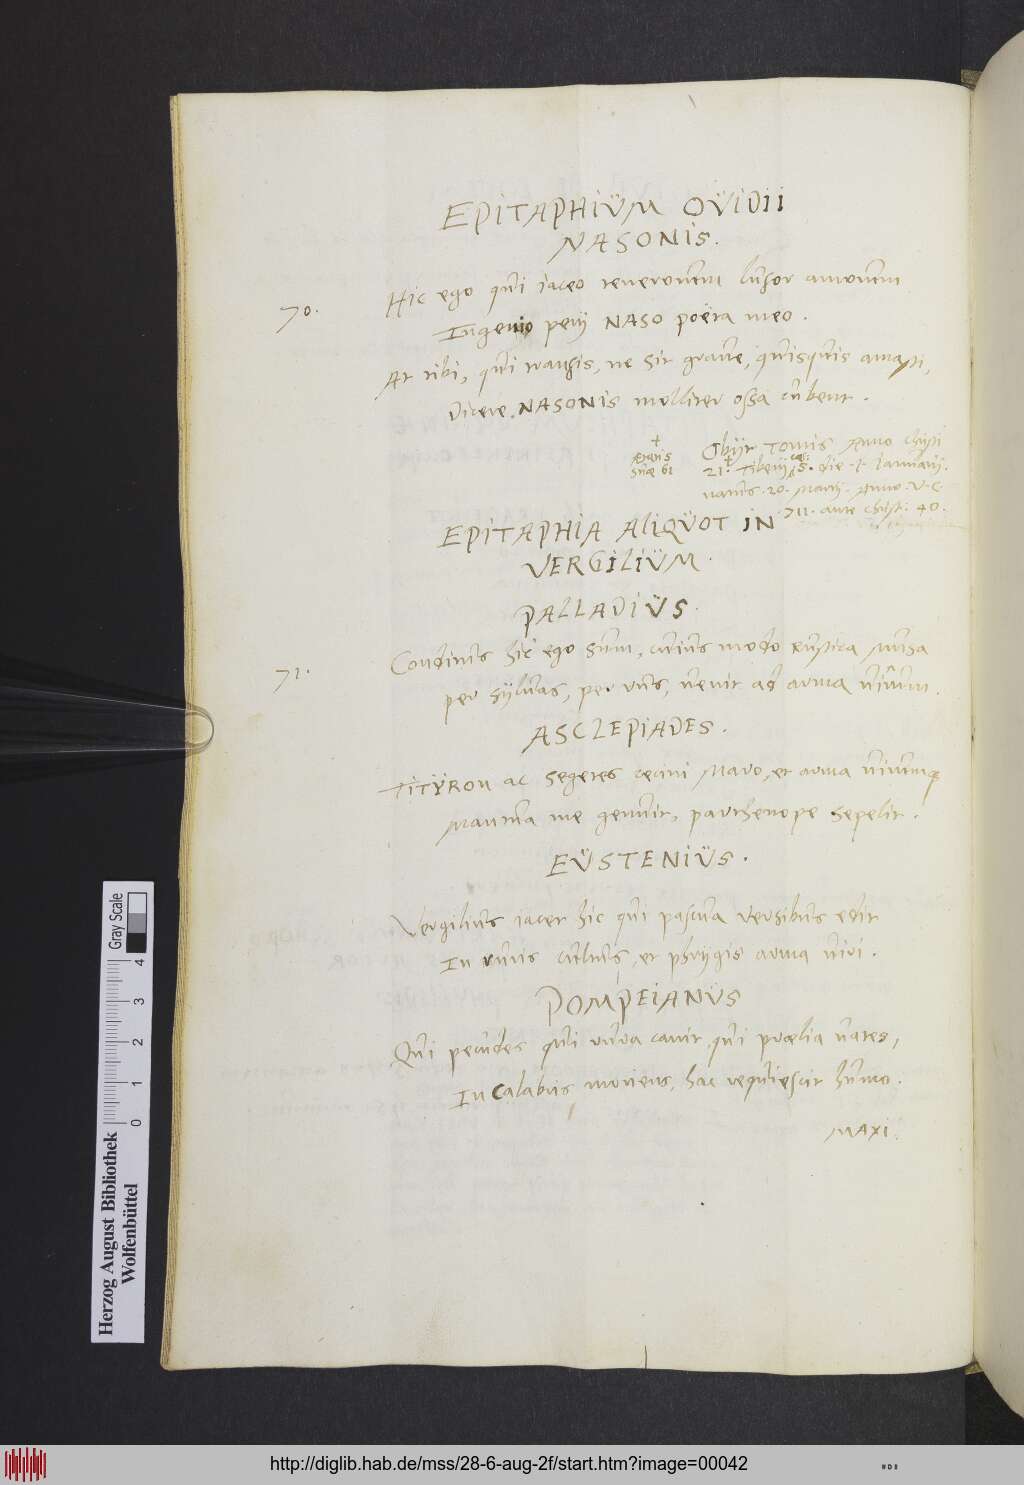 EPITAPHIUM OUIDII
NASONIS.
70. Hic ego qui iaceo tenerorum lusor amorum
Ingenio perij NASO poëta meo.
At tibi, qui transis, ne sit graue, quisquis amasti,
Dicere, NASONIS molliter ossa cubent.
Obijt Tomis Anno Christi
+ ætatis suæ 61
21. + Tiberij 5. die 1. Ianuarij.
natus 20. Martij. Anno V.C.
711. ante Christ: 40.
EPITAPHIA ALIQUOT IN
VERGILIUM.
PALLADIUS.
71. Conditus hic ego sum, cuius modo rustica Musa
per syluas, per rus, uenit ad arma uirûm.
ASCLEPIADES.
TITYRON ac segetes cecini Maro, et arma uirumq
Mantua me genuit, parthenope sepelit.
EUSTENIUS.
Vergilius iacet hic qui pascua versibus edit
In ruris cultus, et phrygis arma uiri.
POMPEIANUS
Qui pecudes qui rura canit, qui prælia uates,
In Calabris moriens, hac requiescit humo.
MAXI.
Herzog August Bibliothek
Wolfenbüttel
0 1 2 3 4
Gray Scale
http://diglib.hab.de/mss/28-6-aug-2f/start.htm?image=00042